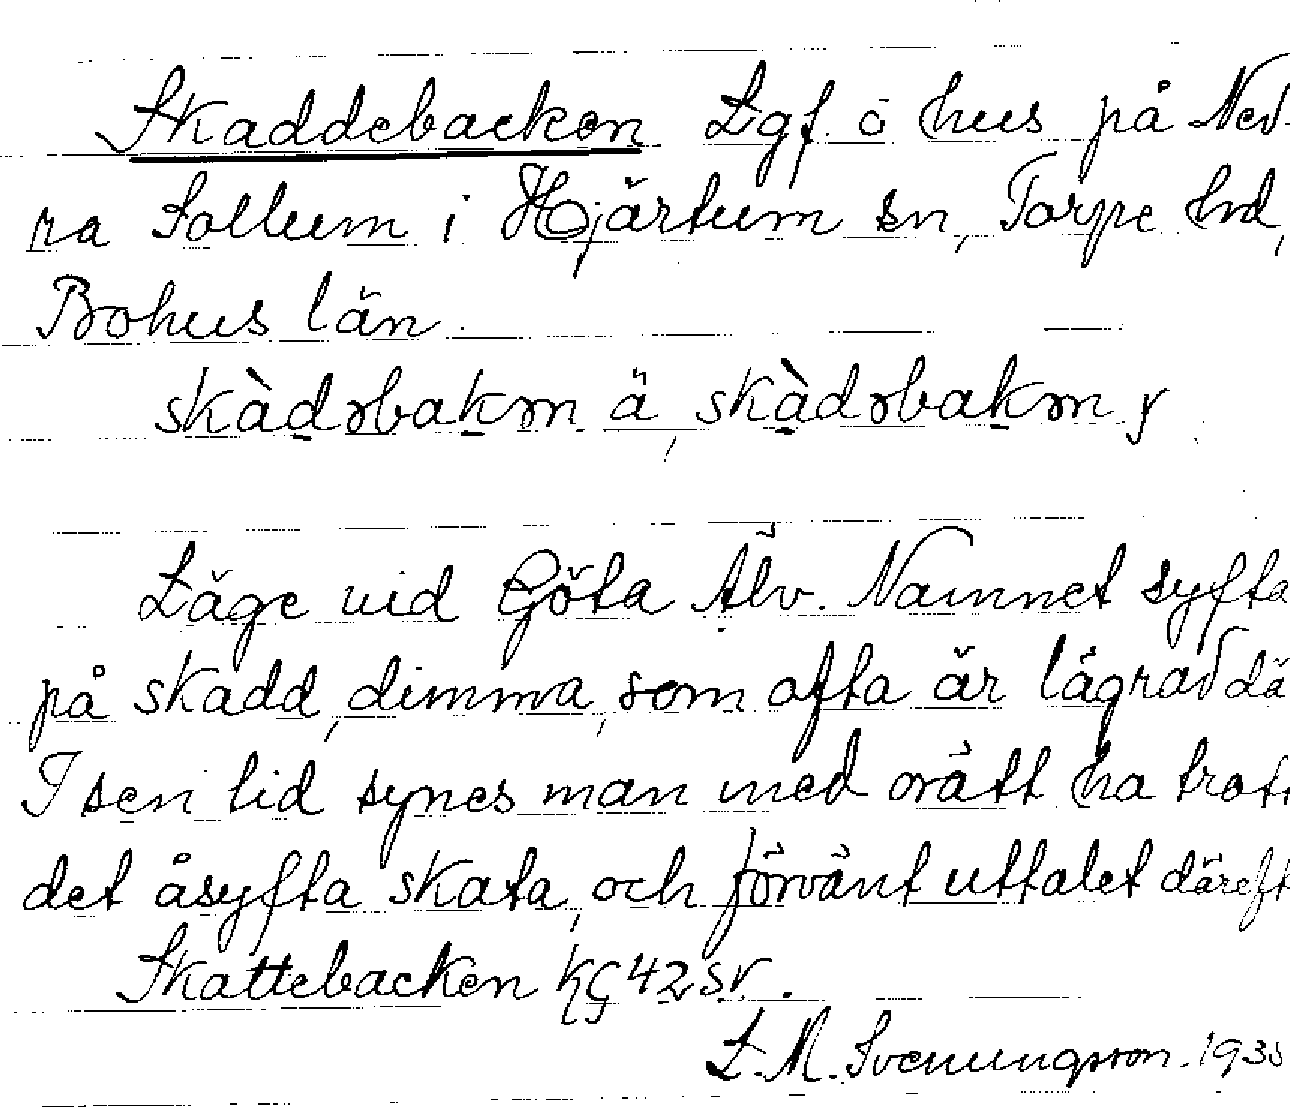 Skaddebacken Lgf o hus på Ned-
ra Sollum i Hjärtum sn, Torpe hd,
Bohus län.
skàdəbakən ä, skàdəbakən y
Läge vid Göta Älv. Namnet syfta
på skadd, dimma, som ofta är lågrad dä
I sen tid synes man med orätt ha trott
det åsyfta skata, och förvänt uttalet däreft
Skattebacken KG 42 SV.
L. M. Svenungsson. 1935